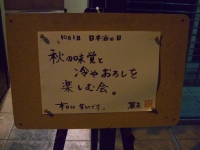 10月1日 日本酒の日
秋の味覚と
冷やおろしを
楽しむ会。